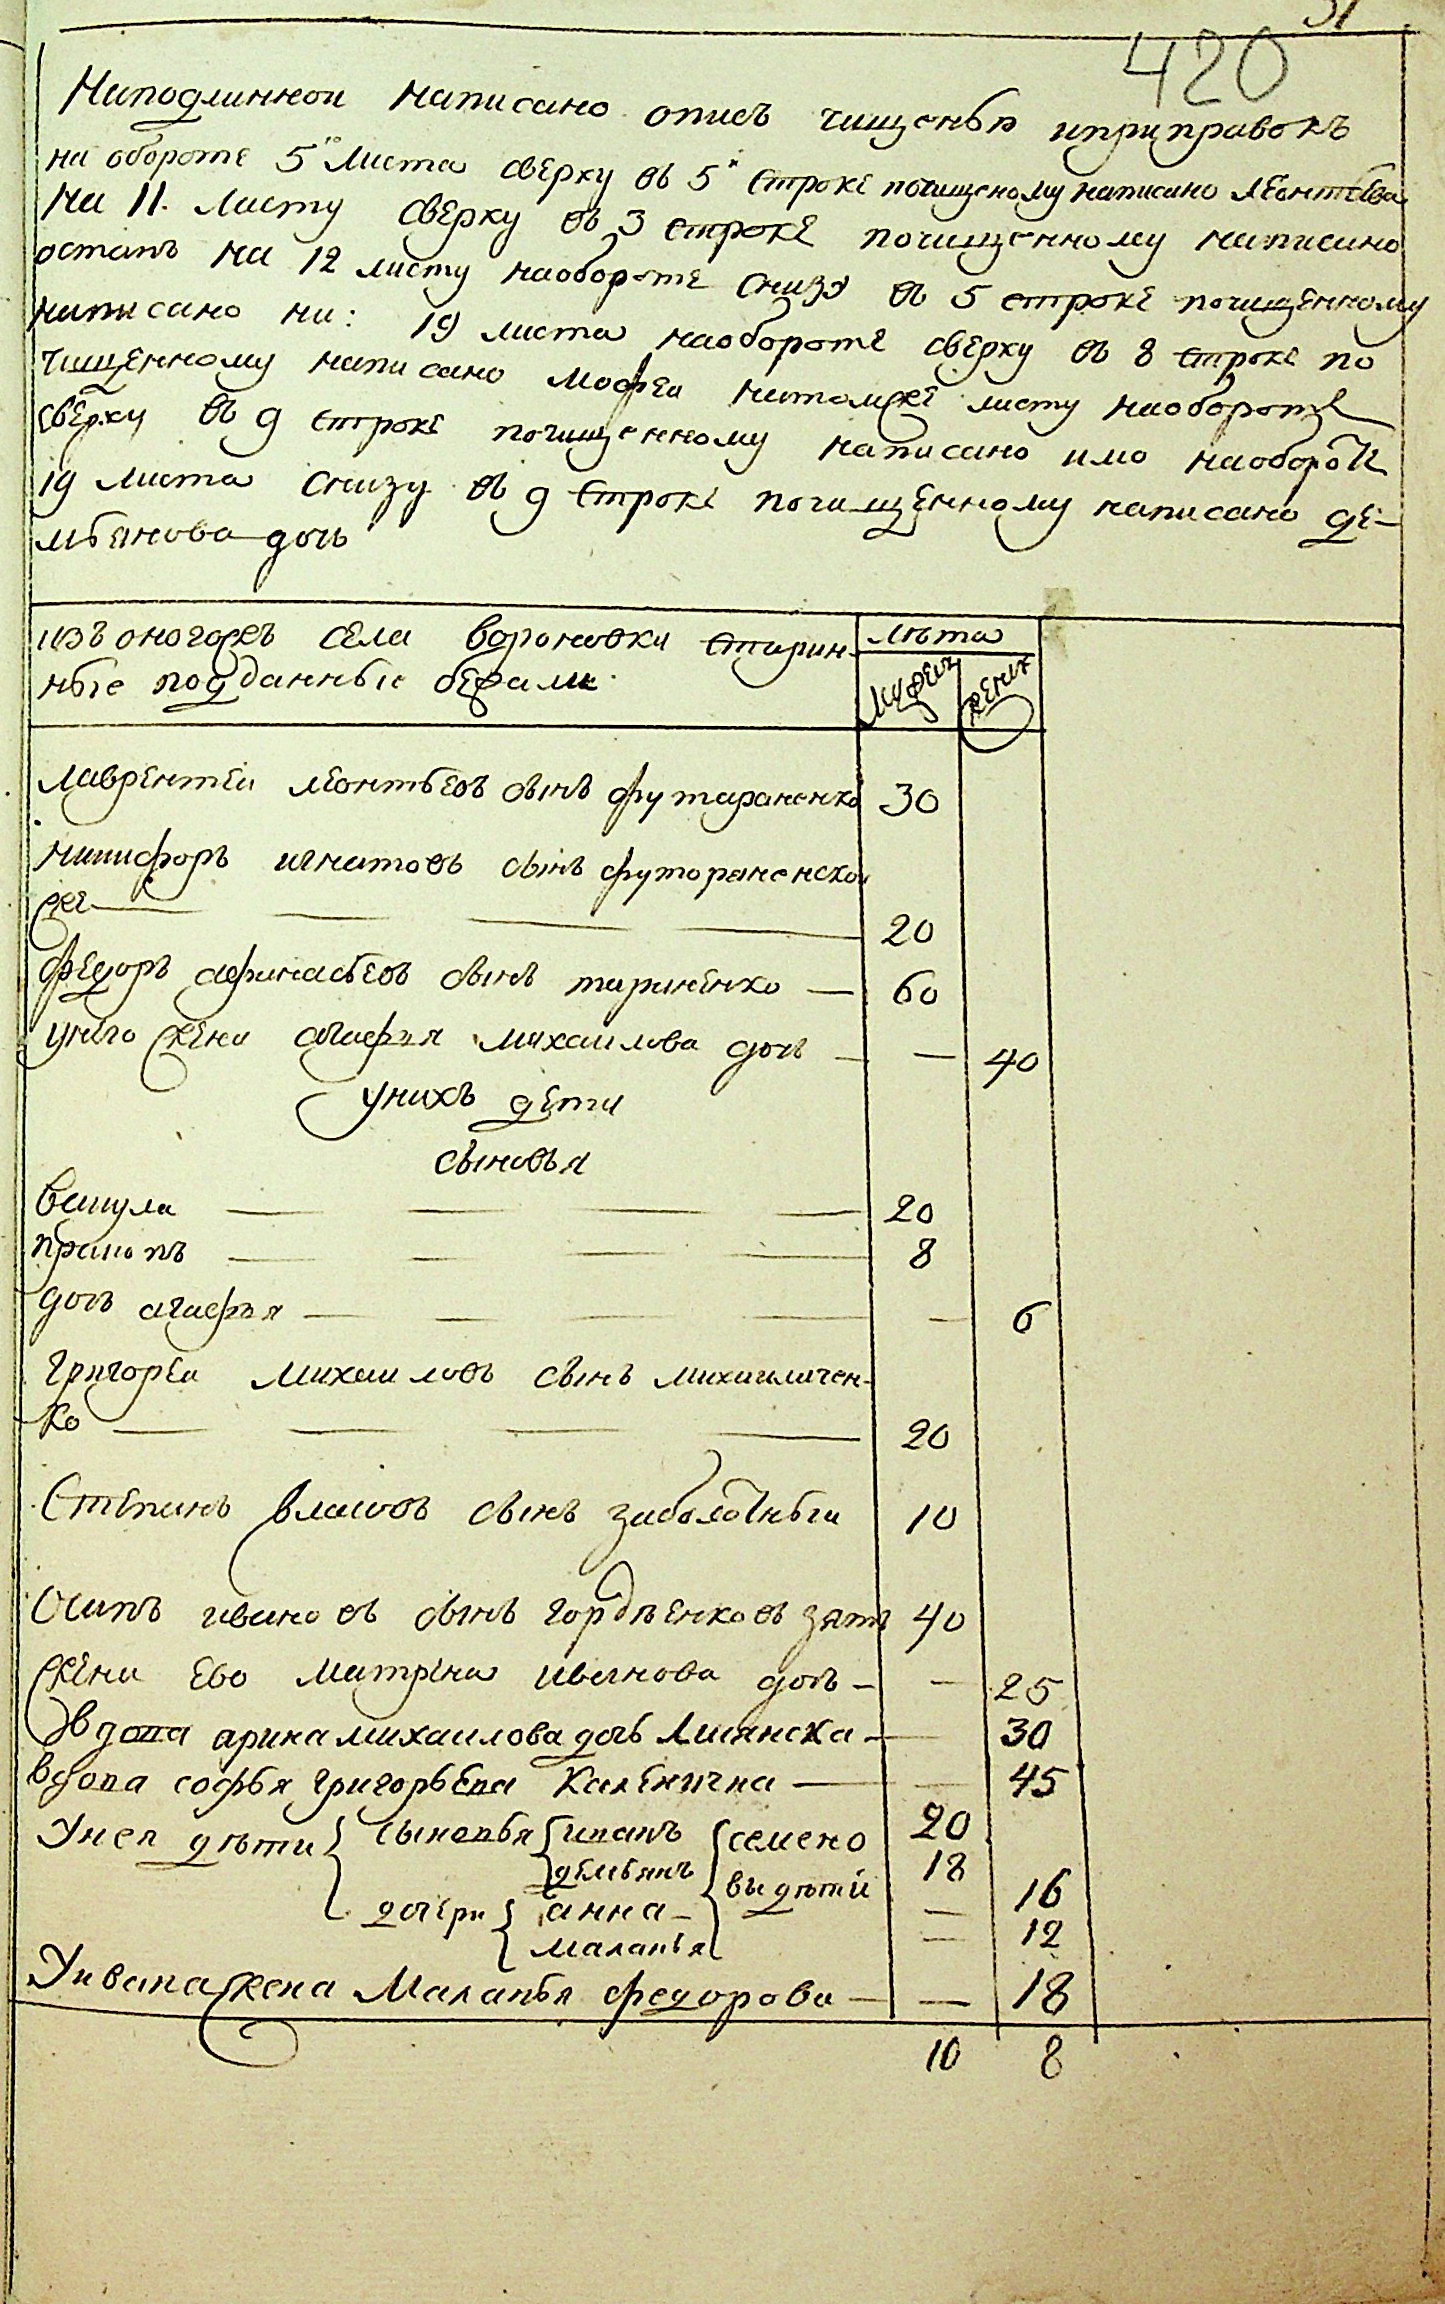 31
420
Наподлиннои написано описъ чищенья иприправокъ
на обороте 5го листа сверху въ 5й строке почищеному написано леонтьева
на 11. листу сверху въ 3 строке почищенному написано
остапъ на 12 листу наобороте снизу въ 5 строке почищенному
написано на: 19 листа наобороте сверху въ 8 строке по
чищенному написано мофеи натомже листу наобороте
сверху въ 9 строке почищенному написано имо наоборотѣ
19 листа снизу въ 9 строке почищенному написано де-
мьянова дочь
изъ оногожъ села вороновки старин-
ные подданные бежали
лѣта
мужеска
женска
лаврентеи леонтьевъ сынъ футараненко 30
никифоръ игнатовъ сынъ футораненкож
же 20
федоръ афанасьевъ сынъ тараненко — 60
унего жена агафия михаилова дочь — — 40
унихъ дети
сыновья
вакула 20
пракопъ 8
дочь агафья — 6
григореи михаиловъ сынъ михаиличен-
ко 20
степанъ власовъ сынъ заболотныи 10
осипъ ивановъ сынъ гордѣенковъ зять 40
жена ево матрена иванова дочь — — 25
вдова арина михаилова дочь лисянска — 30
вдова софья григорьева каленична — — 45
Унея дѣти сыновья иванъ семено 20
демьянъ выдѣтй 18
дочери анна — — 16
маланья — 12
Уивана жена Маланья федорова — — 18
10 8